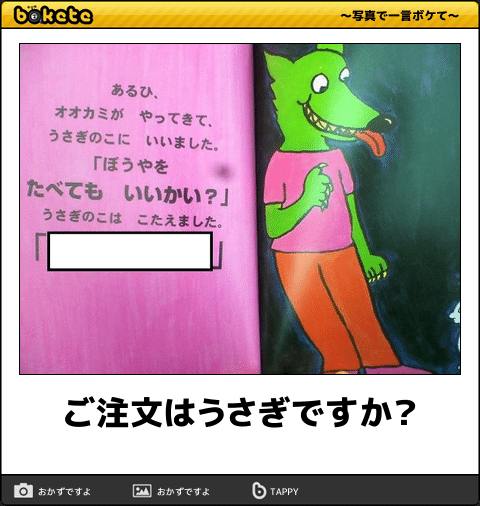 bokete
～写真で一言ボケて～
あるひ、
オオカミが やってきて、
うさぎのこに いいました。
「ぼうやを
たべても いいかい？」
うさぎのこは こたえました。
「 」
ご注文はうさぎですか?
おかずですよ
おかずですよ
TAPPY